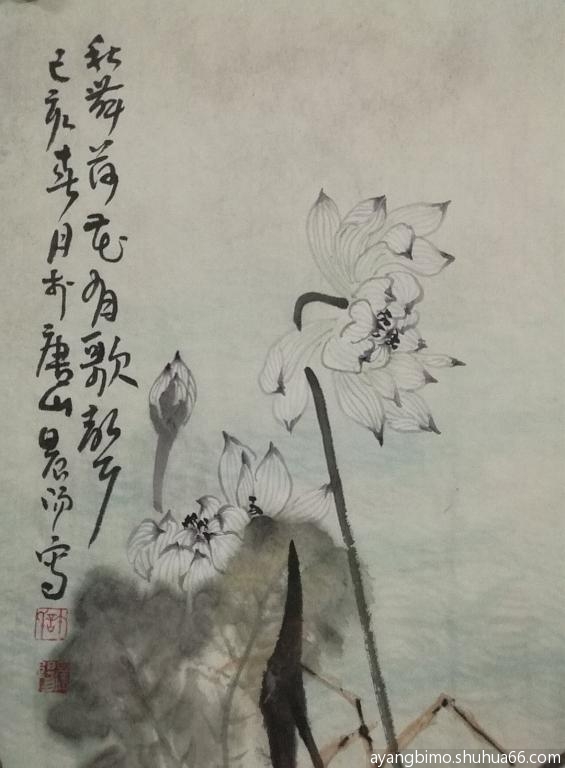 秋舞荷花有歌聲
己亥春月於唐山晨阳写
ayangbimo.shuhua66.com